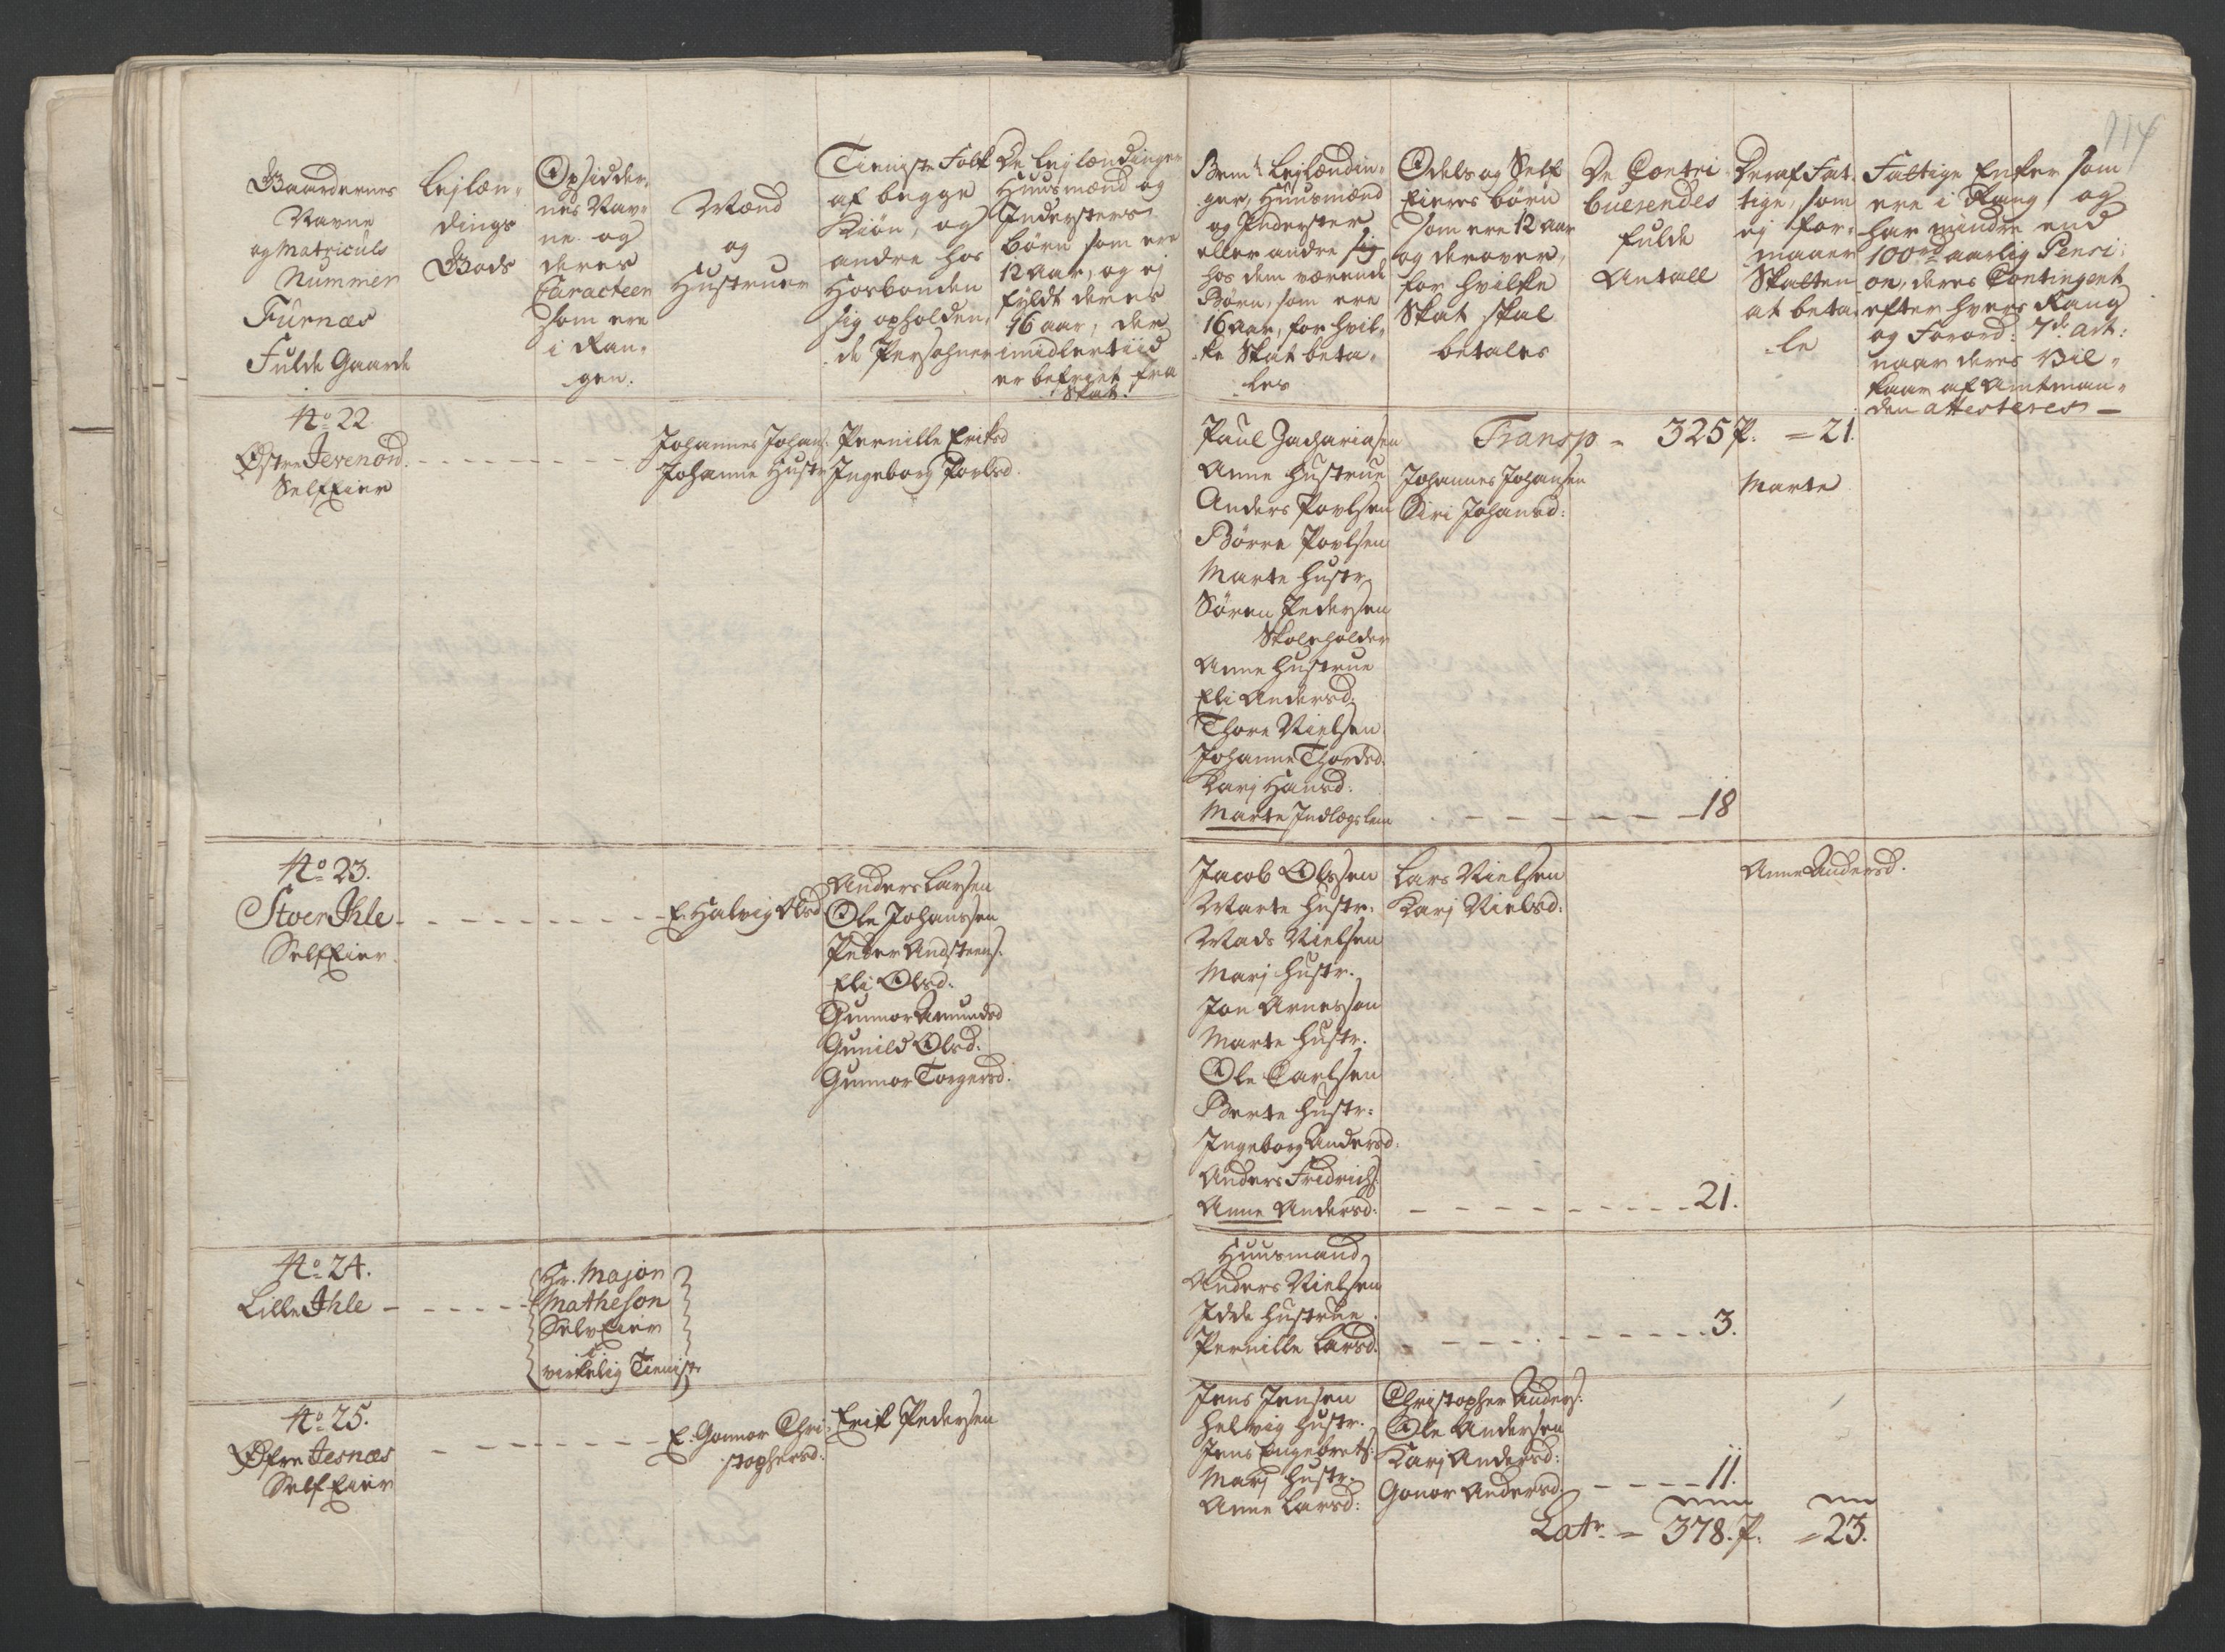 114
Gaardernes
Navne
og Matriculs
Nummer
Furnæs
Fulde Gaarde
Lejlæn-
dings
Gods
Opsidder-
nes Nav-
ne og
deres
Caracteer
som ere
i Ran-
gen.
Mænd
og
Hustruer
Tieniste Folk
af begge
Kiøn, og
andre hos
Hosbonden
sig opholden-
de Persohner
De Lejlændinger
Huusmænd og
Inderster-
børn som ere
12 Aar, og ej
fyldt deres
16 aar, der
imidlertiid
er befriet fra
Skat.
Bem.te Lejlændin-
ger, Huusmænd
og Inderster
eller andre sig
hos dem værende
Børn, som ere
16 Aar, for hvil-
ke Skat beta-
les
Odels og Self
Eieres børn
som ere 12 Aar
og derover,
for hvilke
Skat skal
betales
De Contri
buerendes
fulde
Antall
Deraf Fat-
tige, som
ej for-
maaer
Skatten
at beta-
le
Fattige Enker som
ere i Rang og
har mindre end
100 rd aarlig Pensi-
on, deres Contingent
efter hvers Rang
og Forord: 7de Art:
naar deres Vil-
kaar af Amtman-
den attesteres –
No 22.
Østre Jevenord.
SelfEier
Johannes Johans:
Johanne Hustr
Pernille Eriksd
Ingeborg Povlsd.
Paul Zachariasen
Anne Hustrue
Anders Povlsen
Børre Povlsen
Marte Hustr
Søren Pedersen
Skoleholder
Anne Hustrue
Eli Andersd.
Thore Nielsen
Johanne Thordsd.
Karj Hansd:
Marte Indlægslem
Transp – 325 P. = 21.
Johannes Johansen
Siri Johansd:
Marte
18
No 23.
Stoer Ihle
SelfEier.
E. Halvig Olsd
Anders Larsen
Ole Johanssen
Peder Andsteens.
Eli Olsd:
Gunnor Amundsd
Gunild Olsd:
Gunnor Torgersd:
Jacob Olssen
Marte Hustr:
Mads Nielsen
Marj Hustr.
Jon Arnessen
Marte Hustr.
Ole Carlsen
Berte Hustr:
Ingeborg Andersd:
Anders Fridrichs:
Anne Andersd:
Lars Nielsen
Karj Nielsd:
21.
Anne Andersd.
No 24.
Lille Ihle
Hr. Major
Matheson
SelvEier
i
virkelig Tieniste
Huusmand
Anders Nielsen
Idde Hustrue.
Pernille Larsd.
3.
No 25.
Øfre Jesnæs
SelfEier
E. Gonnor Chri-
stophersd:
Erik Pedersen
Jens Jensen
Helvig Hustr.
Jens Engebrets:
Marj Hustr.
Anne Larsd:
Christopher Anders:
Ole Andersen
Karj Andersd:
Gonor Andersd.
11.
Latr – 378. P. = 23.